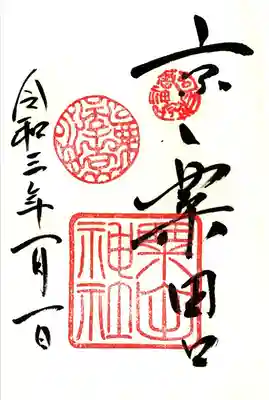 京、粟田口
粟田神社
令和三年一月一日